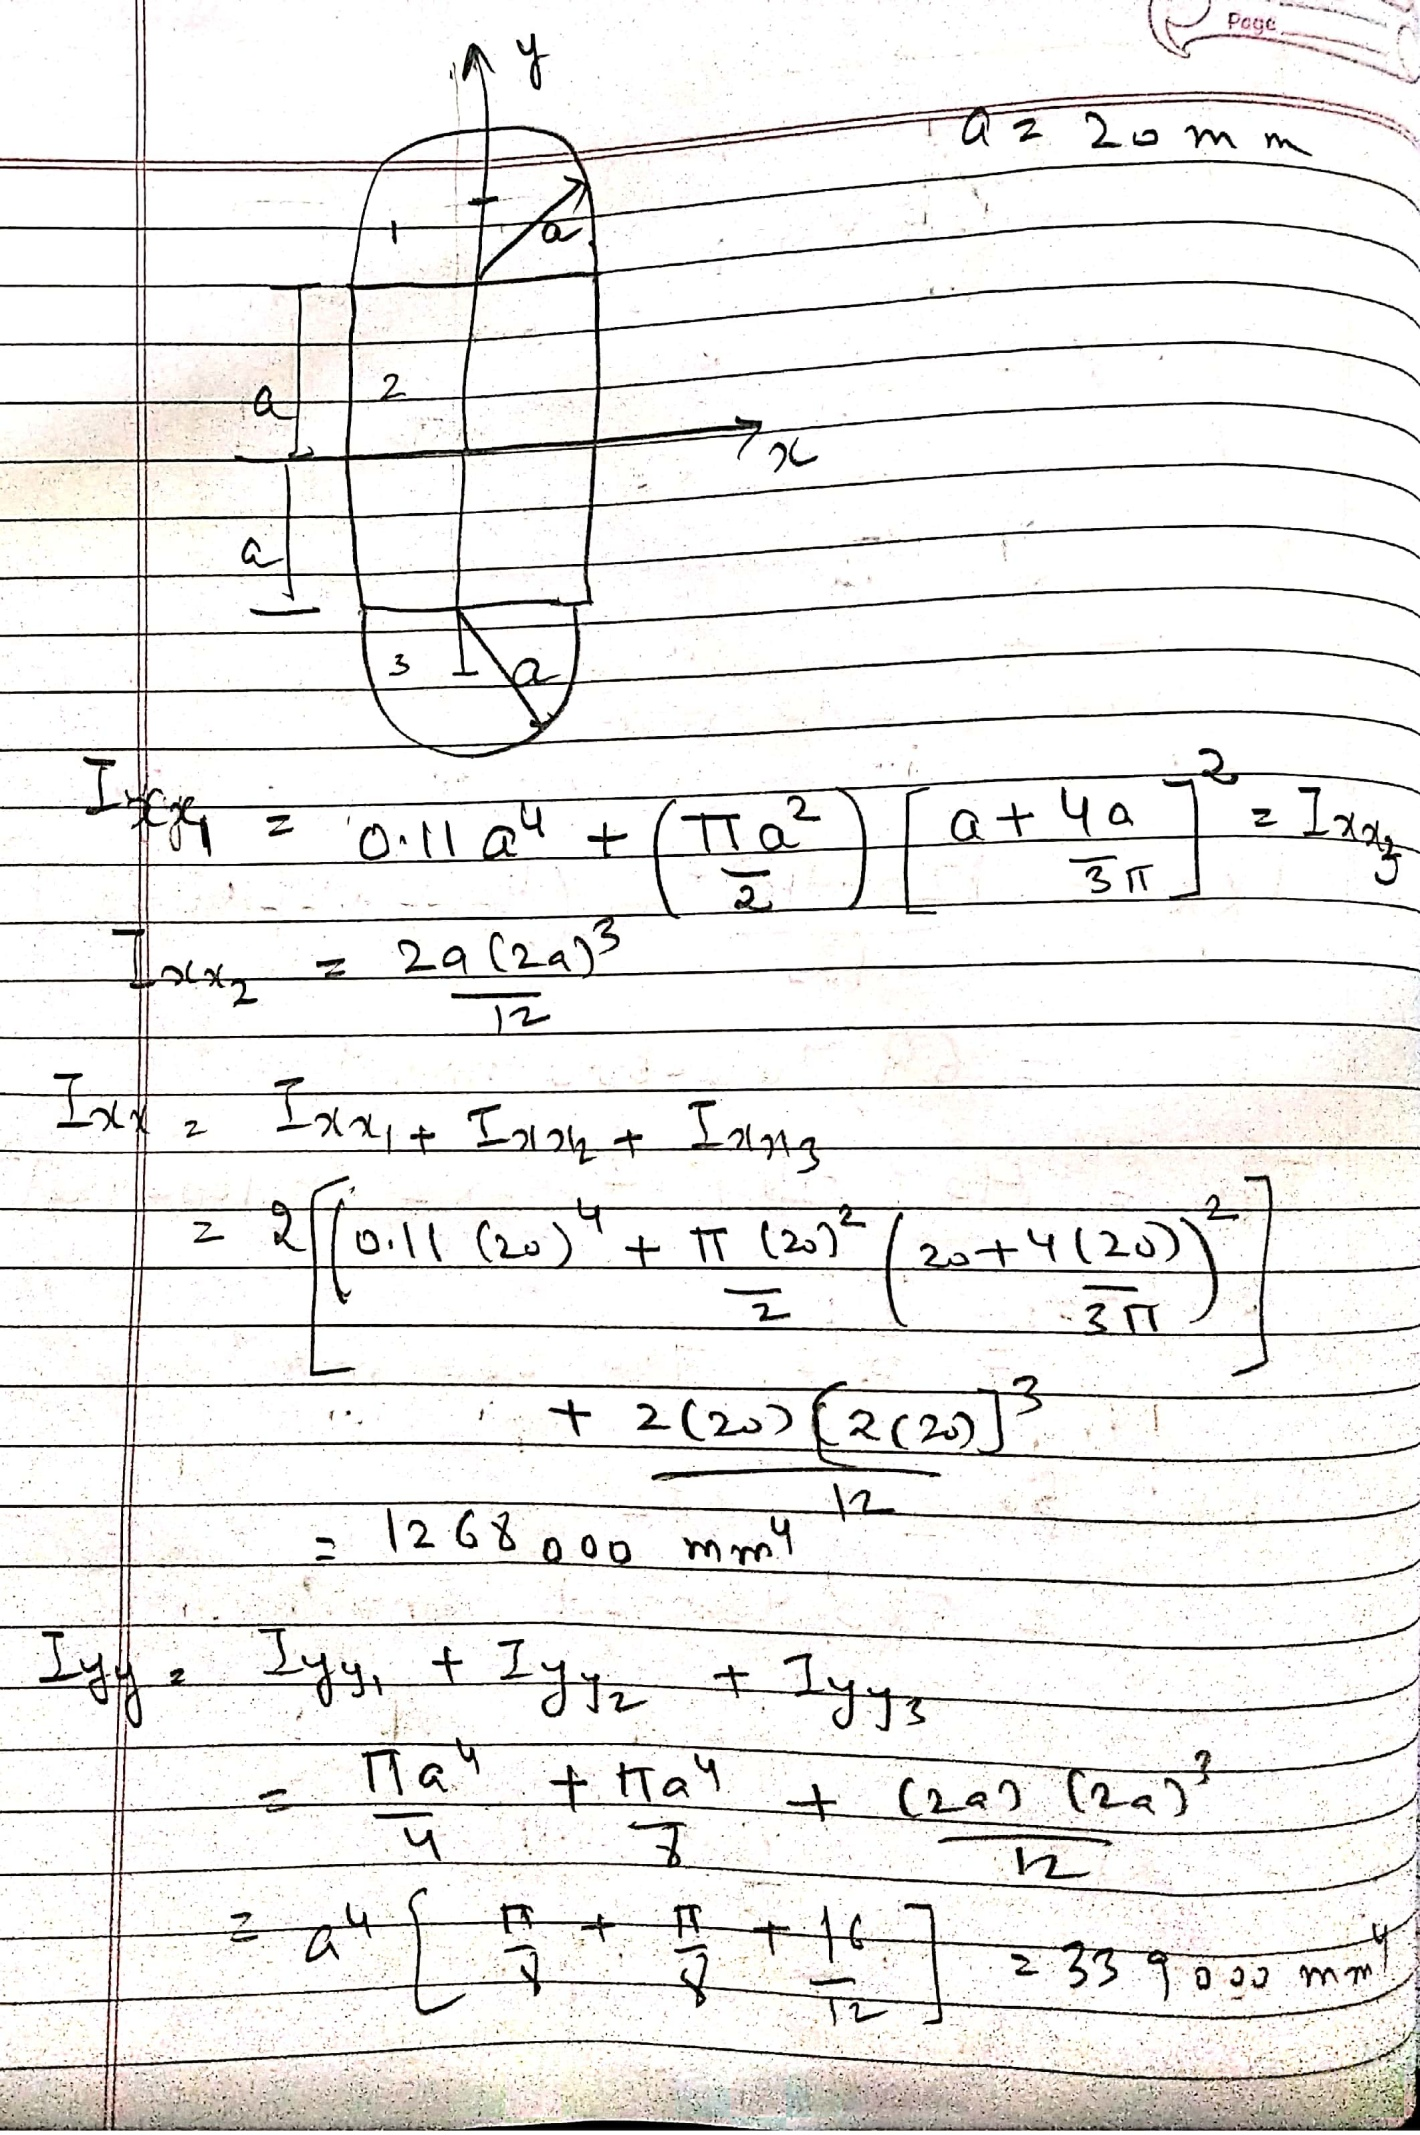 Page
y
a = 20 mm
1
a
a
2
x
a
3
a
Ixx1 = 0.11 a^4 + (πa^2/2) [a + 4a/3π]^2 = Ixx3
Ixx2 = 2a(2a)^3/12
Ixx = Ixx1 + Ixx2 + Ixx3
= 2[(0.11 (20)^4 + π(20)^2/2 (20 + 4(20)/3π)^2]
+ 2(20)[2(20)]^3/12
= 1268000 mm^4
Iyy = Iyy1 + Iyy2 + Iyy3
= πa^4/4 + πa^4/8 + (2a)(2a)^3/12
= a^4 [π/8 + π/8 + 16/12] = 339000 mm^4